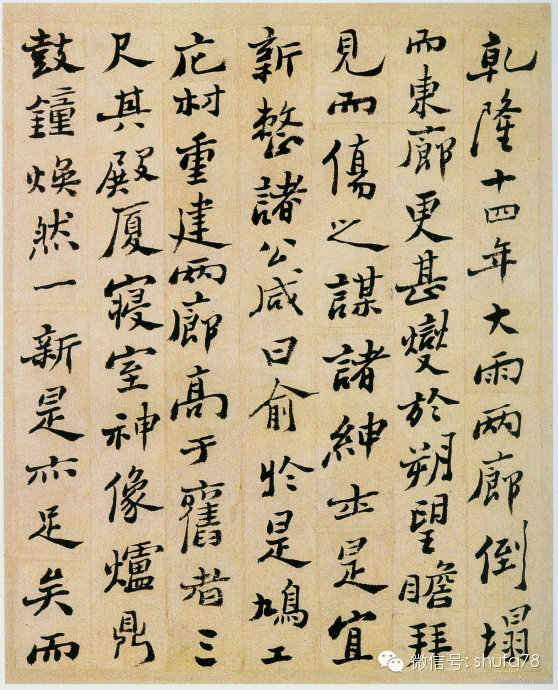 乾隆十四年大雨兩廊倒塌
而東廊更甚燮於朔望瞻拜
見而傷之謀諸紳士是宜
新整諸公咸曰俞於是鳩工
庀材重建兩廊高于舊者三
尺其殿厦寝室神像爐鼎
鼓鐘煥然一新是亦足矣而
微信号: shufa78